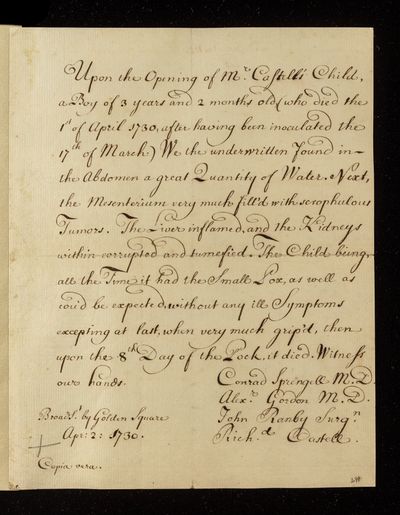 Upon the Opening of Mr. Castelli Child,
a Boy of 3 years and 2 months old (who died the
1st of April 1730, after having been inoculated the
17th of March) We the underwritten found in
the Abdomen a great Quantity of Water. Next,
the Mesenterium very much fill'd with scrophulous
Tumors. The Liver inflamed, and the Kidneys
within corrupted and tumefied. The Child being,
all the Time it had the Small Pox, as well as
cou'd be expected, without any ill Symptoms
excepting at last, when very much grip'd, then
upon the 8th Day of the Pock, it died. Witness
our hands.
Conrad Sprengell M.D.
Alexr. Gordon M.D.
John Ranby Surgn
Richd. Castell.
Broad St by Golden Square
Apr: 2: 1730.
Copia vera.